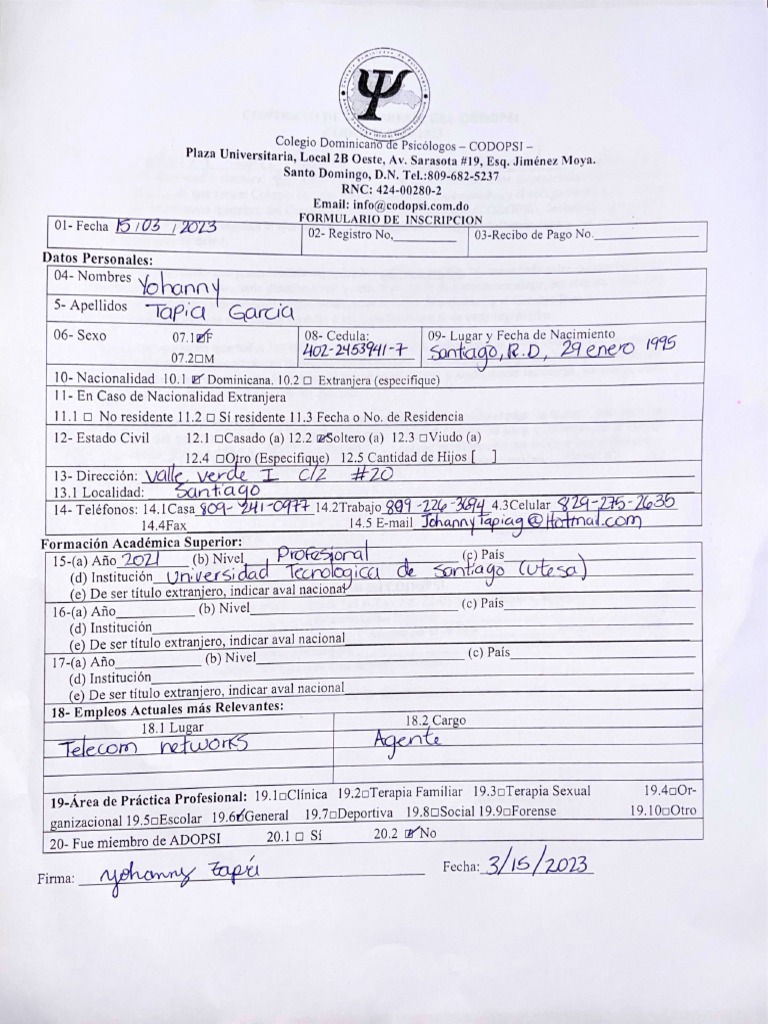 Colegio Dominicano de Psicólogos – CODOPSI –
Plaza Universitaria, Local 2B Oeste, Av. Sarasota #19, Esq. Jiménez Moya.
Santo Domingo, D.N. Tel.:809-682-5237
RNC: 424-00280-2
Email: info@codopsi.com.do
FORMULARIO DE INSCRIPCION
01- Fecha 15/03/2023 02- Registro No. 03-Recibo de Pago No.
Datos Personales:
04- Nombres Yohanny
5- Apellidos Tapia Garcia
06- Sexo 07.1☑F 08- Cedula: 09- Lugar y Fecha de Nacimiento
07.2☐M 402-2453941-7 Santiago, R.D, 29 enero 1995
10- Nacionalidad 10.1 ☑ Dominicana. 10.2 ☐ Extranjera (especifique)
11- En Caso de Nacionalidad Extranjera
11.1 ☐ No residente 11.2 ☐ Sí residente 11.3 Fecha o No. de Residencia
12- Estado Civil 12.1 ☐Casado (a) 12.2 ☑Soltero (a) 12.3 ☐Viudo (a)
12.4 ☐Otro (Especifique) 12.5 Cantidad de Hijos [ ]
13- Dirección: Valle verde I C/2 #20
13.1 Localidad: Santiago
14- Teléfonos: 14.1Casa 809-241-0977 14.2Trabajo 809-226-3694 4.3Celular 829-275-2635
14.4Fax 14.5 E-mail JohannyTapiag@Hotmail.com
Formación Académica Superior:
15-(a) Año 2021 (b) Nivel Profesional (c) País
(d) Institución Universidad Tecnologica de Santiago (utesa)
(e) De ser título extranjero, indicar aval nacional
16-(a) Año (b) Nivel (c) País
(d) Institución
(e) De ser título extranjero, indicar aval nacional
17-(a) Año (b) Nivel (c) País
(d) Institución
(e) De ser título extranjero, indicar aval nacional
18- Empleos Actuales más Relevantes:
18.1 Lugar 18.2 Cargo
Telecom networks Agente
19-Área de Práctica Profesional: 19.1☐Clínica 19.2☐Terapia Familiar 19.3☐Terapia Sexual 19.4☐Or-
ganizacional 19.5☐Escolar 19.6☑General 19.7☐Deportiva 19.8☐Social 19.9☐Forense 19.10☐Otro
20- Fue miembro de ADOPSI 20.1 ☐ Sí 20.2 ☑No
Firma: Yohanny Tapia Fecha: 3/15/2023